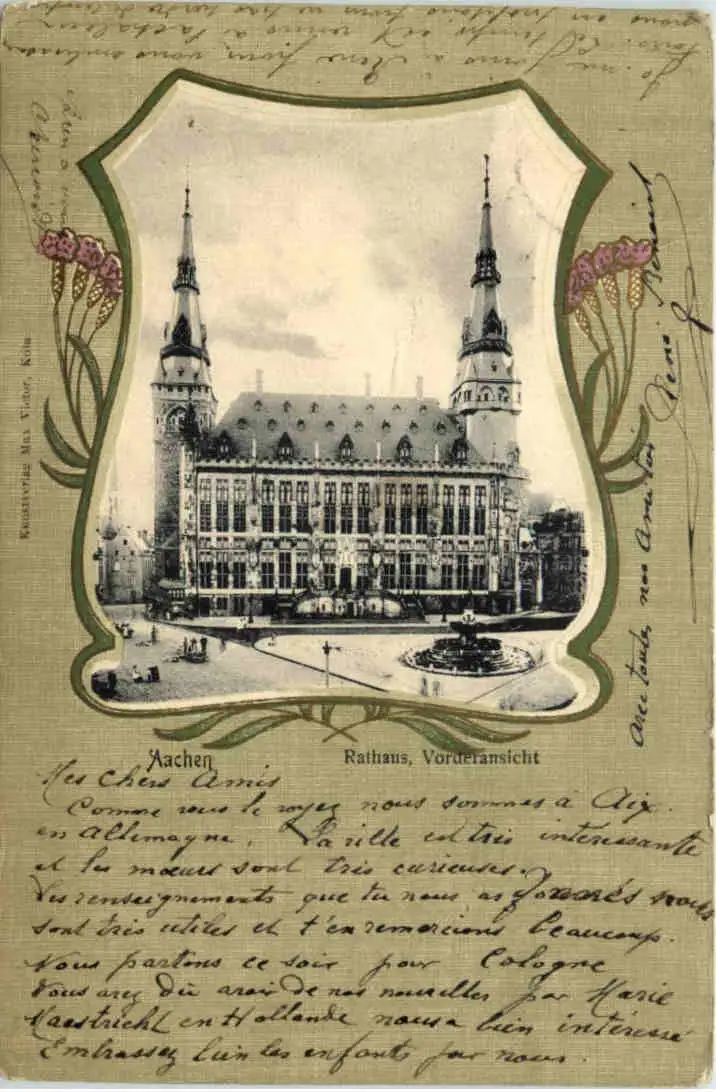 Aachen
Rathaus, Vorderansicht
Kunstverlag Max Victor, Köln
Mes chers Amis
Comme vous le voyez nous sommes à Aix
en Allemagne. La ville est très intéressante
et les mœurs sont très curieuses.
Les renseignements que tu nous as donnés nous
sont très utiles et t'en remercions beaucoup.
Nous partons ce soir pour Cologne
Vous avez dû avoir de nos nouvelles par Marie
Maestricht en Hollande nous a bien intéressé
Embrassez bien les enfants pour nous.
avec toutes nos Amitiés René Benoist